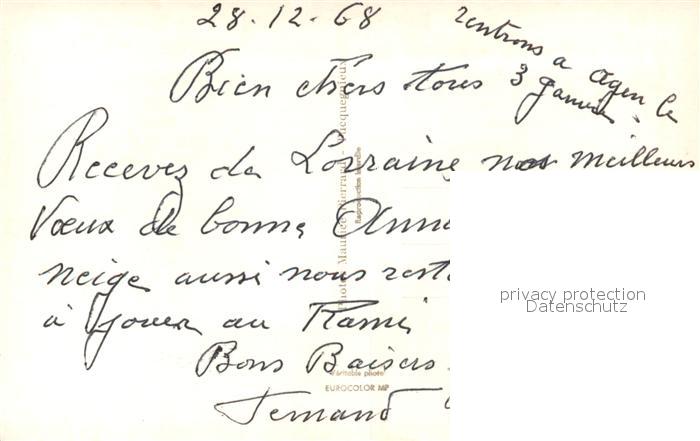 28.12.68
rentrons a Agen le
3 Janvier.
Bien chers tous
Recevez de Lorraine nos meilleurs
Vœux de bonne Anné
neige aussi nous rest
à Jouer au Rami
Bons Baisers
Fernand
Photo Maurice Pierrard
Reproduction interdite
Véritable photo
EUROCOLOR MP
privacy protection
Datenschutz